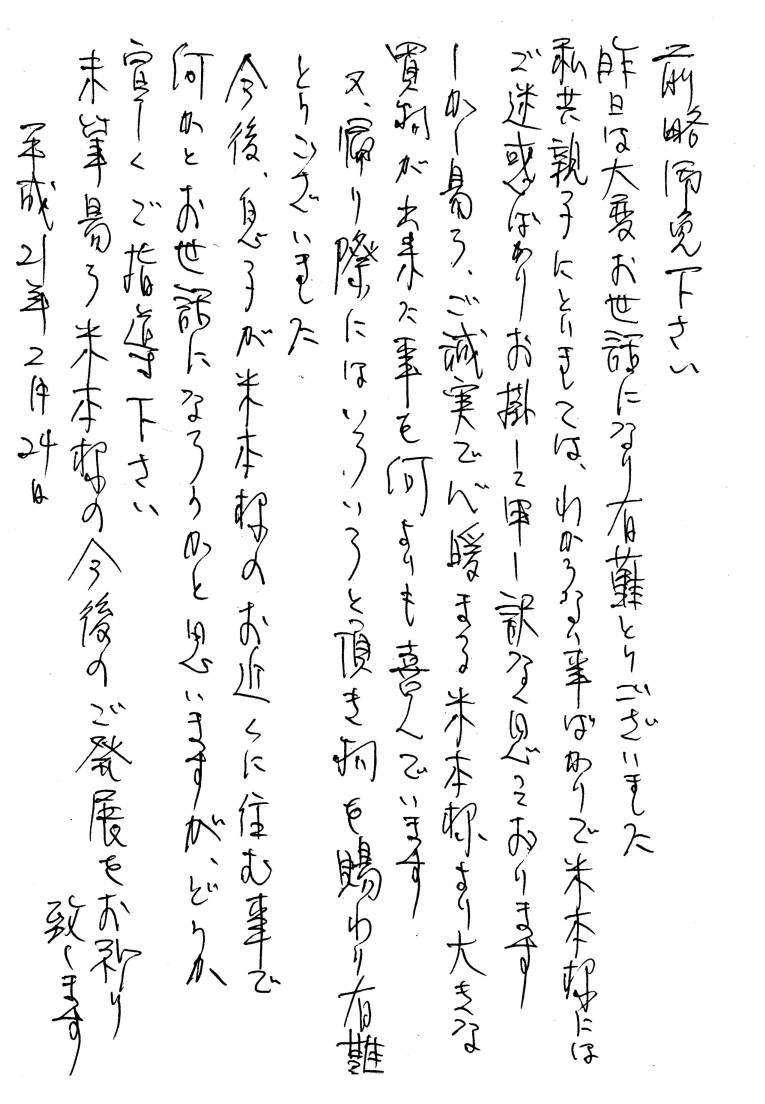 前略御免下さい
昨日は大変お世話になり有難とうございました
私共親子にとりましては、わからない事ばかりで米本様には
ご迷惑ばかりお掛して申し訳なく思っております
しかし乍ら、ご誠実で心暖まる米本様より大きな
買物が出来た事を何よりも喜んでいます
又、帰り際にはいろいろと頂き物を賜わり有難
とうございました
今後、息子が米本様のお近くに住む事で
何かとお世話になろうかと思いますが、どうか
宜しくご指導下さい
末筆乍ら米本様の今後のご発展をお祈り
致します
平成21年2月24日